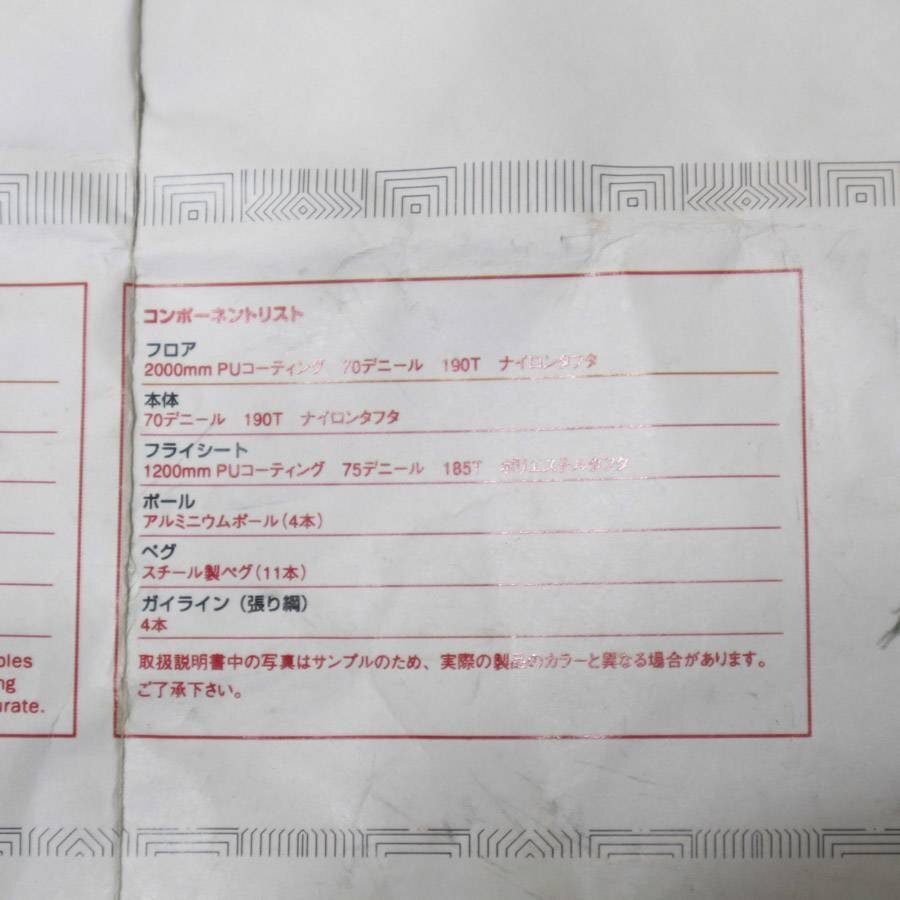 コンポーネントリスト
フロア
2000mm PUコーティング 70デニール 190T ナイロンタフタ
本体
70デニール 190T ナイロンタフタ
フライシート
1200mm PUコーティング 75デニール 185T ポリエステルタフタ
ポール
アルミニウムポール(4本)
ペグ
スチール製ペグ(11本)
ガイライン(張り綱)
4本
取扱説明書中の写真はサンプルのため、実際の製品のカラーと異なる場合があります。
ご了承下さい。